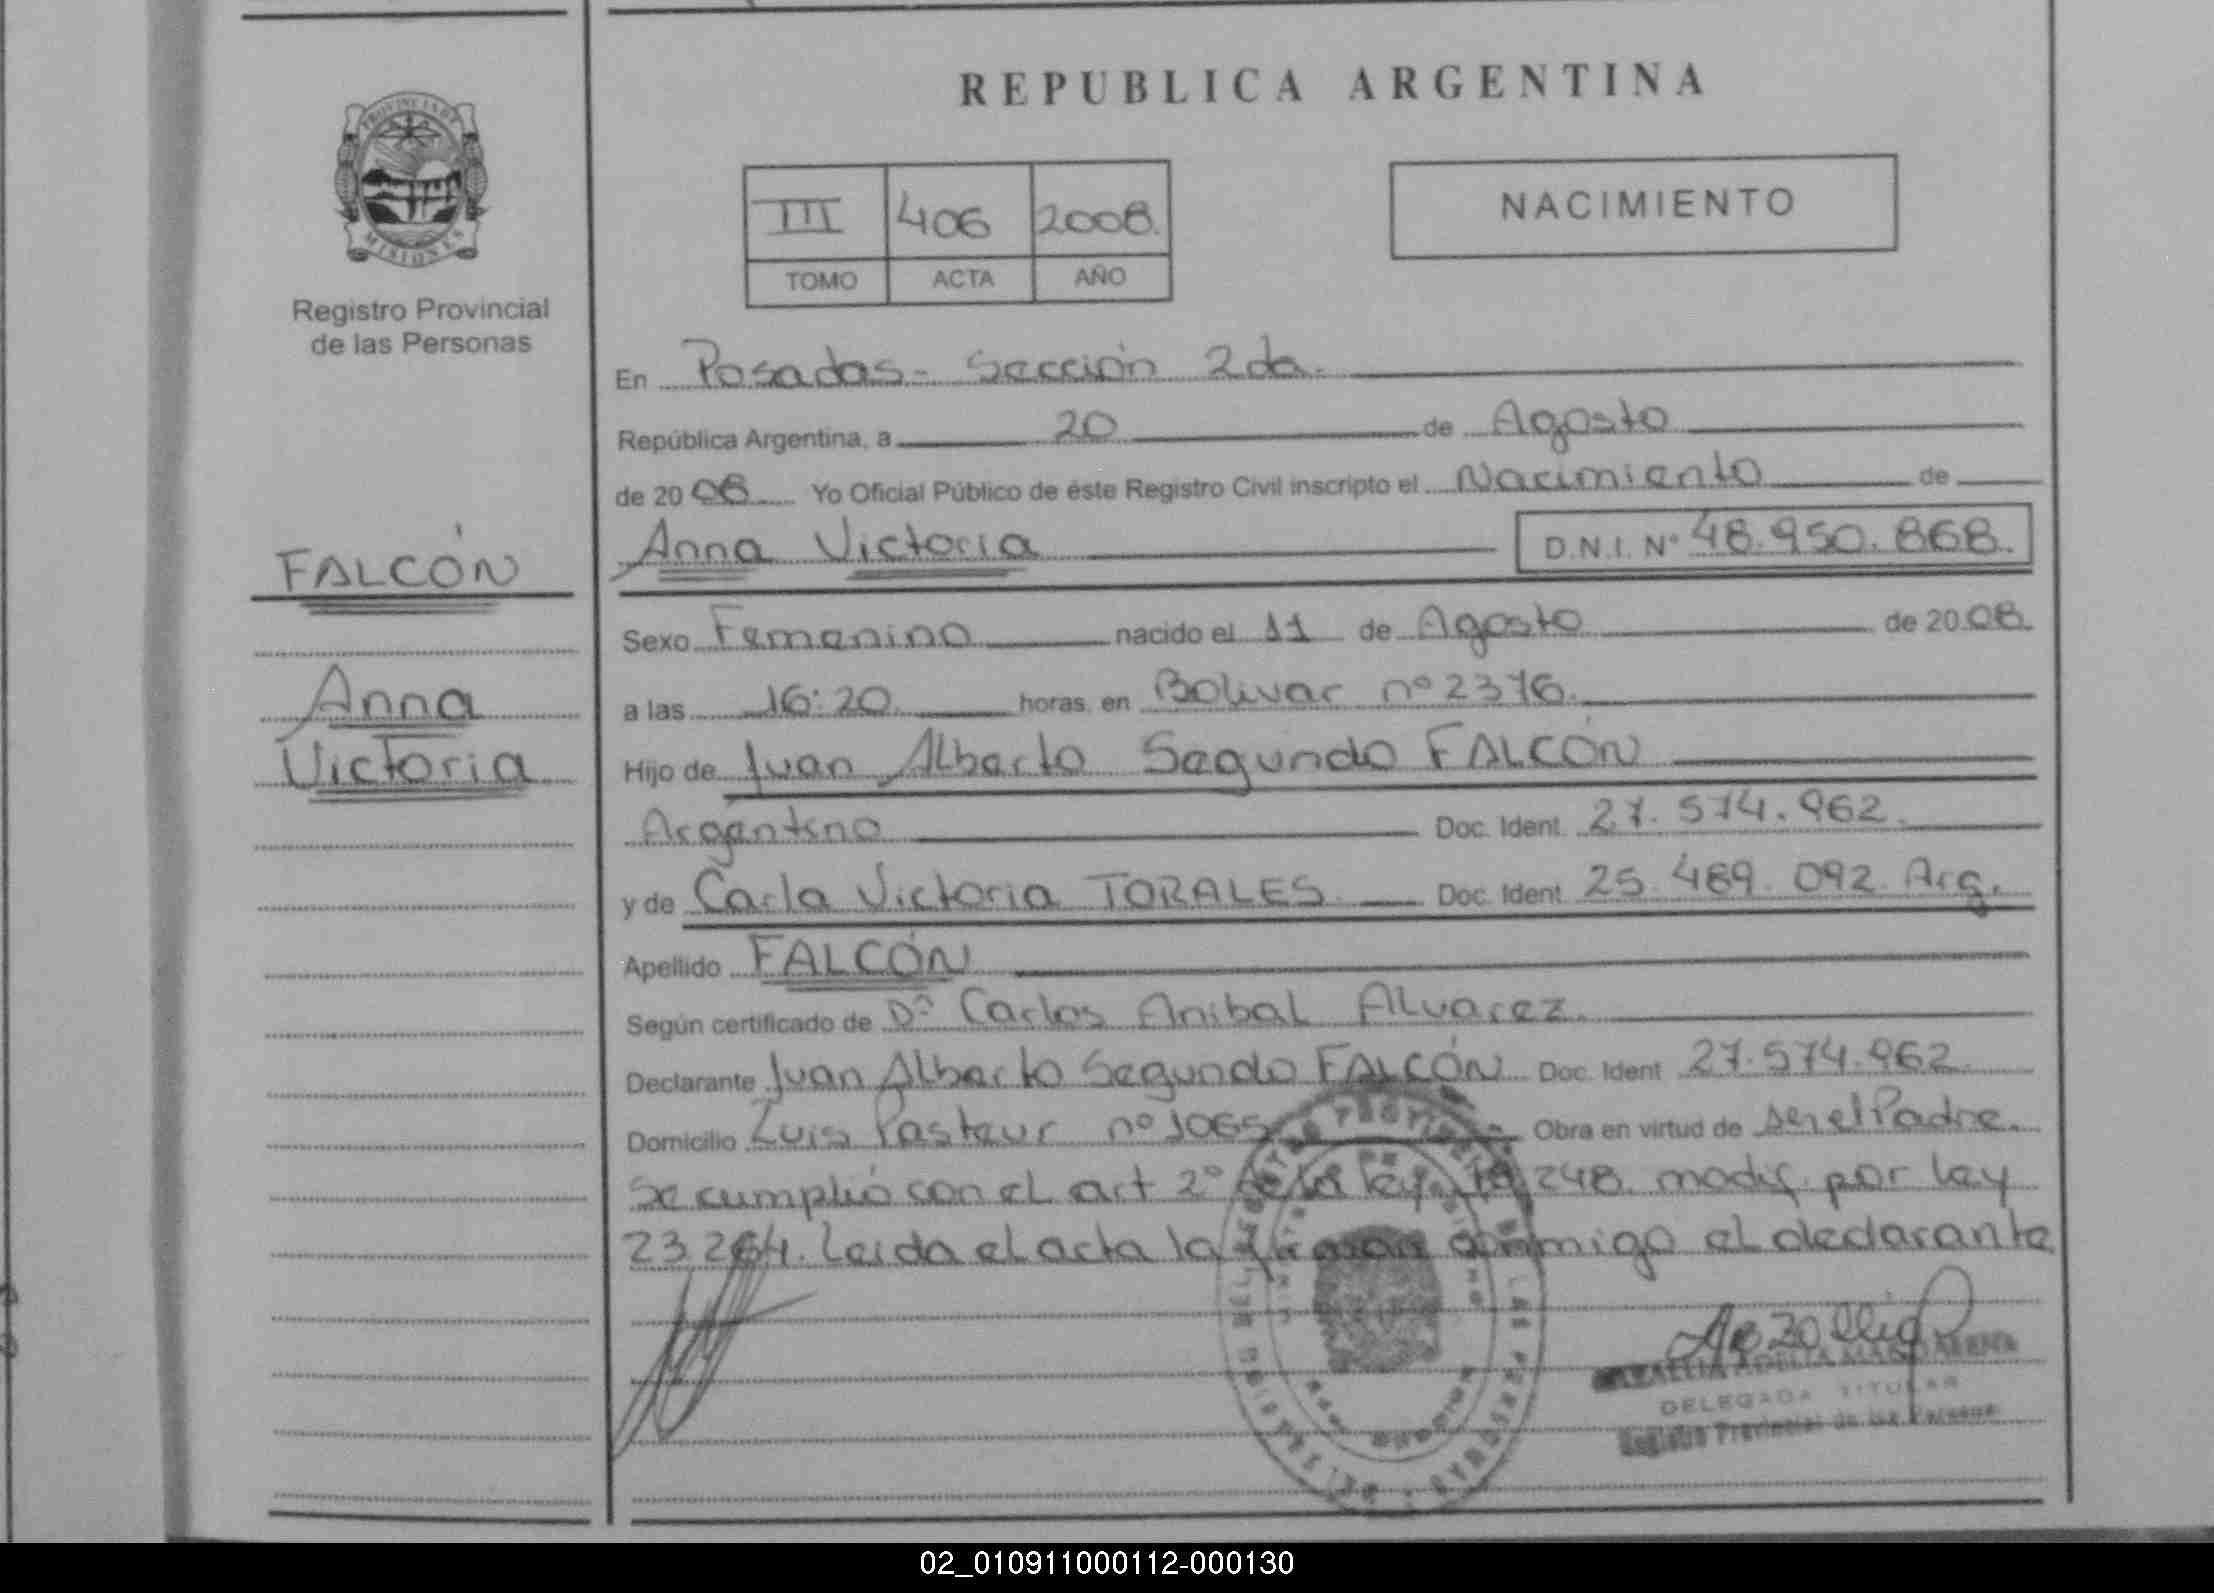 REPUBLICA ARGENTINA
PROVINCIA DE
MISIONES
Registro Provincial
de las Personas
III 406 2008.
TOMO ACTA AÑO
NACIMIENTO
En Posadas- Sección 2da.
República Argentina, a 20 de Agosto
de 2008 Yo Oficial Público de éste Registro Civil inscripto el Nacimiento de
Anna Victoria D.N.I. Nº 48.950.868.
FALCÓN
Anna
Victoria
Sexo Femenino nacido el 11 de Agosto de 2008.
a las 16:20. horas, en Bolivar nº 2376.
Hijo de Juan Alberto Segundo FALCÓN
Argentino Doc. Ident. 27.574.962.
y de Carla Victoria TORALES. Doc. Ident. 25.489.092. Arg.
Apellido FALCÓN
Según certificado de Dº Carlos Anibal Alvarez.
Declarante Juan Alberto Segundo FALCÓN Doc. Ident. 27.574.962.
Domicilio Luis Pasteur nº 1065 Obra en virtud de ser el Padre.
Se cumplió con el art 2º de la ley 18.248. modif. por ley
23.264. Leida el acta la firman conmigo el declarante
DELEGADA TITULAR
Registro Provincial de las Personas
02_010911000112-000130